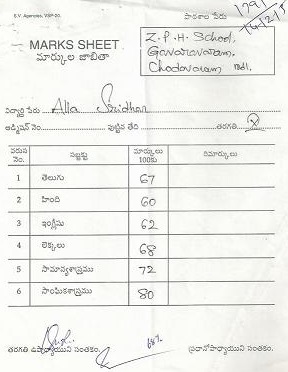 S.V. Agencies, VSP-20.
పాఠశాల పేరు
MARKS SHEET
మార్కుల జాబితా
Z.P.H School,
Gavaravaram,
Chodavaram Mdl.
విద్యార్థి పేరు Alla Sridhar
అడ్మిషన్ నెం. పుట్టిన తేది తరగతి X
వరుస నెం. సబ్జక్టు మార్కులు 100కు రిమార్కులు
1 తెలుగు 67
2 హింది 60
3 ఇంగ్లీషు 62
4 లెక్కలు 68
5 సామాన్యశాస్త్రము 72
6 సాంఘికశాస్త్రము 80
68%
తరగతి ఉపాధ్యాయుని సంతకం. ప్రధానోపాధ్యాయుని సంతకం.